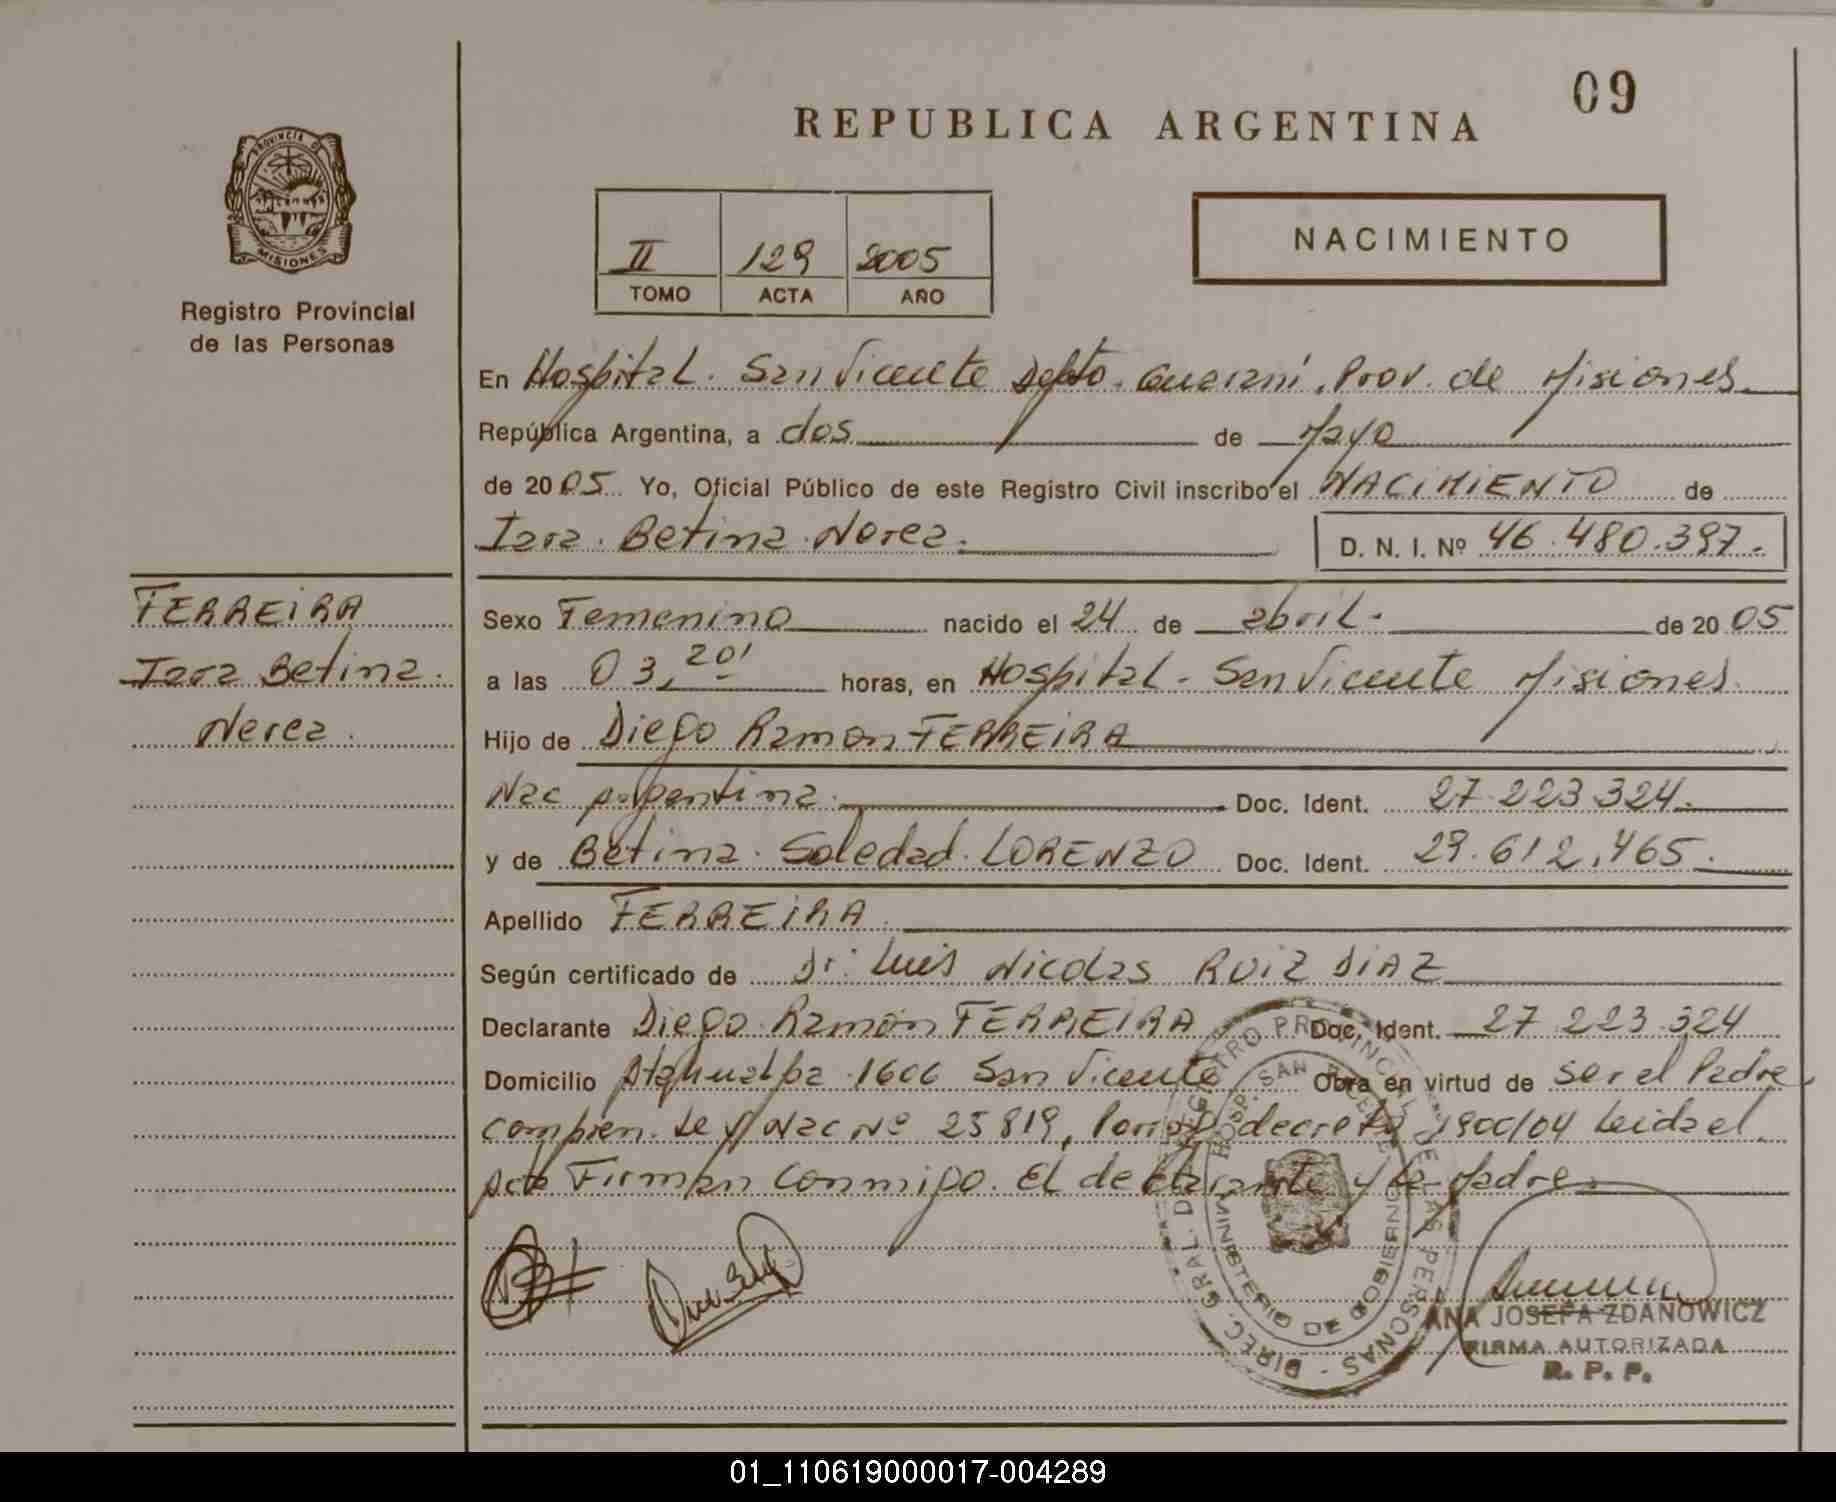 09
REPUBLICA ARGENTINA
PROVINCIA DE
MISIONES
Registro Provincial
de las Personas
II 129 2005
TOMO ACTA AÑO
NACIMIENTO
En Hospital. San Vicente Depto. Guaraní. Prov. de Misiones
República Argentina, a dos de Mayo
de 2005 Yo, Oficial Público de este Registro Civil inscribo el NACIMIENTO de
Iara. Betina. Nerea.
D. N. I. Nº 46.480.397.
FERREIRA
Iara Betina.
Nerea.
Sexo Femenino nacido el 24 de abril. de 2005
a las 03,20' horas, en Hospital. San Vicente Misiones.
Hijo de Diego Ramon FERREIRA
Nac Argentina. Doc. Ident. 27.223.324.
y de Betina. Soledad. LORENZO Doc. Ident. 29.612.465.
Apellido FERREIRA.
Según certificado de Dr. Luis Nicolas RUIZ DIAZ
Declarante Diego Ramon FERREIRA Doc. Ident. 27.223.324
Domicilio Atahualpa 1606 San Vicente Obra en virtud de ser el Padre
Ley Nac Nº 25819, decreto 1900/04 Leida el
Acta Firman Conmigo. El declarante y la Madre.
DIREC. GRAL. DEL REGISTRO PROVINCIAL DE LAS PERSONAS
HOSP. SAN VICENTE
MINISTERIO DE GOBIERNO
ANA JOSEFA ZDANOWICZ
FIRMA AUTORIZADA
R. P. P.
01_110619000017-004289